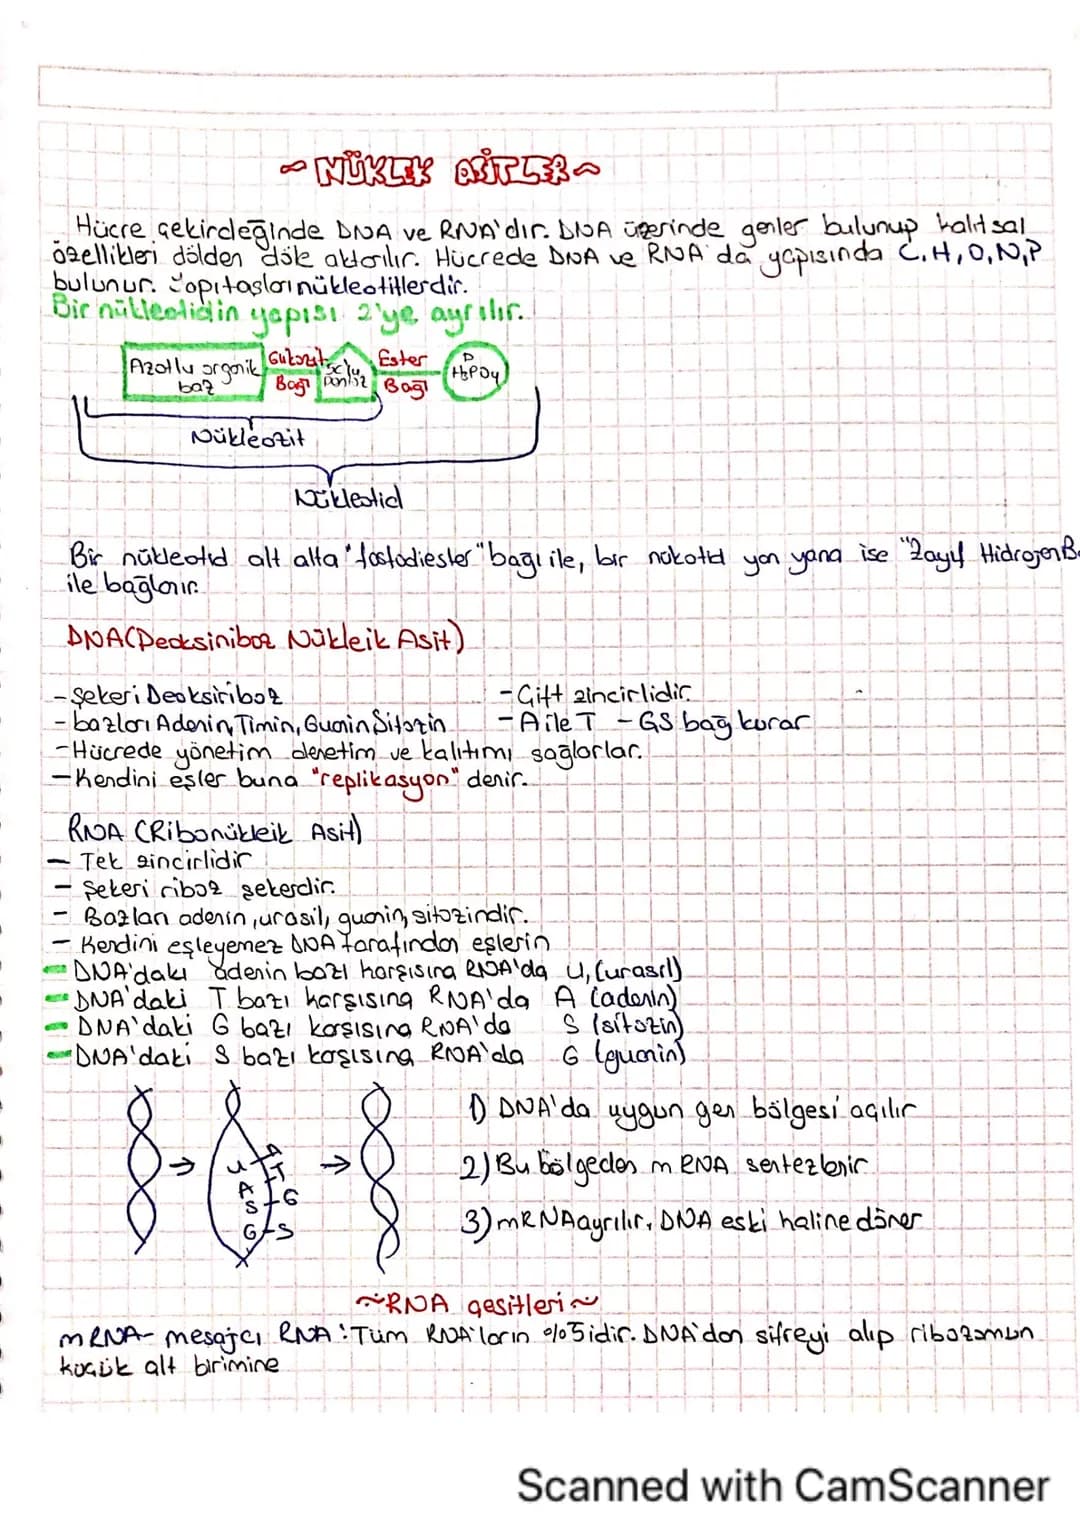 ~ NÜKLEİK ASİTLER ~
Hücre çekirdeğinde DNA ve RNA'dır. DNA üzerinde genler bulunup kalıtsal
özellikleri dölden döle aktarılır. Hücrede DNA ve RNA'da yapısında C,H,O,N,P
bulunur. Yapıtaşları nükleotitlerdir.
Bir nükleotidin yapısı 2'ye ayrılır.
Azotlu organik baz
Glikozit Bağı
5c'lu pentoz
Ester Bağı
P H3PO4
Nükleozit
Nükleotid
Bir nükleotid alt alta "fosfodiester" bağı ile, bir nükotid yan yana ise "Zayıf Hidrojen
ile bağlanır.
DNA(Deoksiniboz Nükleik Asit)
-Şekeri Deoksiriboz
-Çift zincirlidir.
-bazları Adenin, Timin, Guanin Sitozin
-A ile T -GS bağ kurar
-Hücrede yönetim denetim ve kalıtımı sağlarlar.
-Kendini eşler buna "replikasyon" denir.
RNA (Ribonükleik Asit)
- Tek zincirlidir
- Şekeri riboz şekerdir.
- Bazları adenin, urasil, guanin, sitozindir.
- Kendini eşleyemez DNA tarafından eşlenin
- DNA'daki adenin bazı karşısına RNA'da U, (urasil)
- DNA'daki T bazı karşısına RNA'da A (adenin)
- DNA'daki G bazı karşısına RNA'da S (sitozin)
- DNA'daki S bazı koşısına RNA'da G (guanin)
1) DNA'da uygun gen bölgesi açılır
2) Bu bölgeden mRNA sentezlenir
3) mRNA ayrılır, DNA eski haline döner
U A
A T
S G
G S
~RNA çeşitleri~
mRNA- mesajcı RNA: Tüm RNA'ların %5 idir. DNA'dan şifreyi alıp ribozomun
küçük alt birimine
Scanned with CamScanner